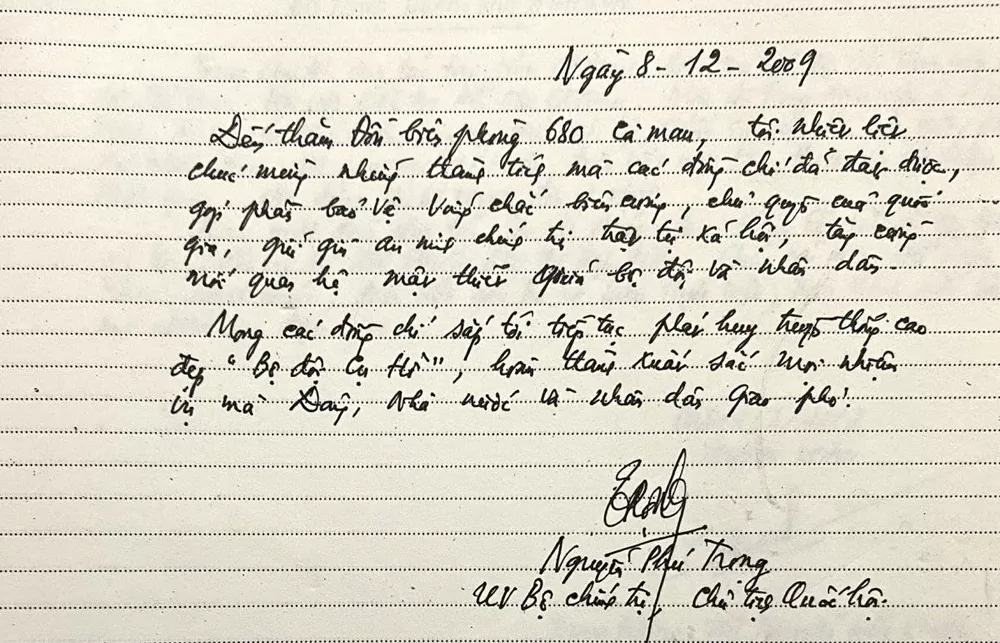 Ngày 8-12-2009
Đến thăm Đồn biên phòng 680 Cà mau, tôi nhiệt liệt
chúc mừng những thành tích mà các đồng chí đã đạt được,
góp phần bảo vệ vững chắc biên cương, chủ quyền của quốc
gia, giữ gìn an ninh chính trị trật tự xã hội, tăng cường
mối quan hệ mật thiết Quân bộ đội và nhân dân.
Mong các đồng chí sắp tới tiếp tục phát huy truyền thống cao
đẹp "Bộ đội Cụ Hồ", hoàn thành xuất sắc mọi nhiệm
vụ mà Đảng, Nhà nước và nhân dân giao phó.
Trọng
Nguyễn Phú Trọng
UV Bộ chính trị, Chủ tịch Quốc hội.